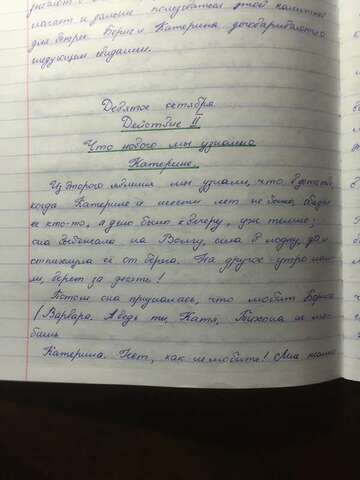 лагает и дальше пользоваться этой калиткой
для встреч. Борис и Катерина договариваются о
следующем свидании.
Девятое октября
Действие II
Что нового мы узнали о
Катерине.
Из второго явления мы узнали, что в детстве,
когда Катерине и шести лет не было, обидел
её кто-то, а дело было к вечеру, уже темно;
она выбежала на Волгу, села в лодку, да и
отпихнула её от берега. На другое утро нашл
и, верст за десять!
Потом она призналась, что любит Бориса
(Варвара. А ведь ты, Катя, Тихона не лю-
бишь
Катерина. Нет, как не любить! Мне жалко